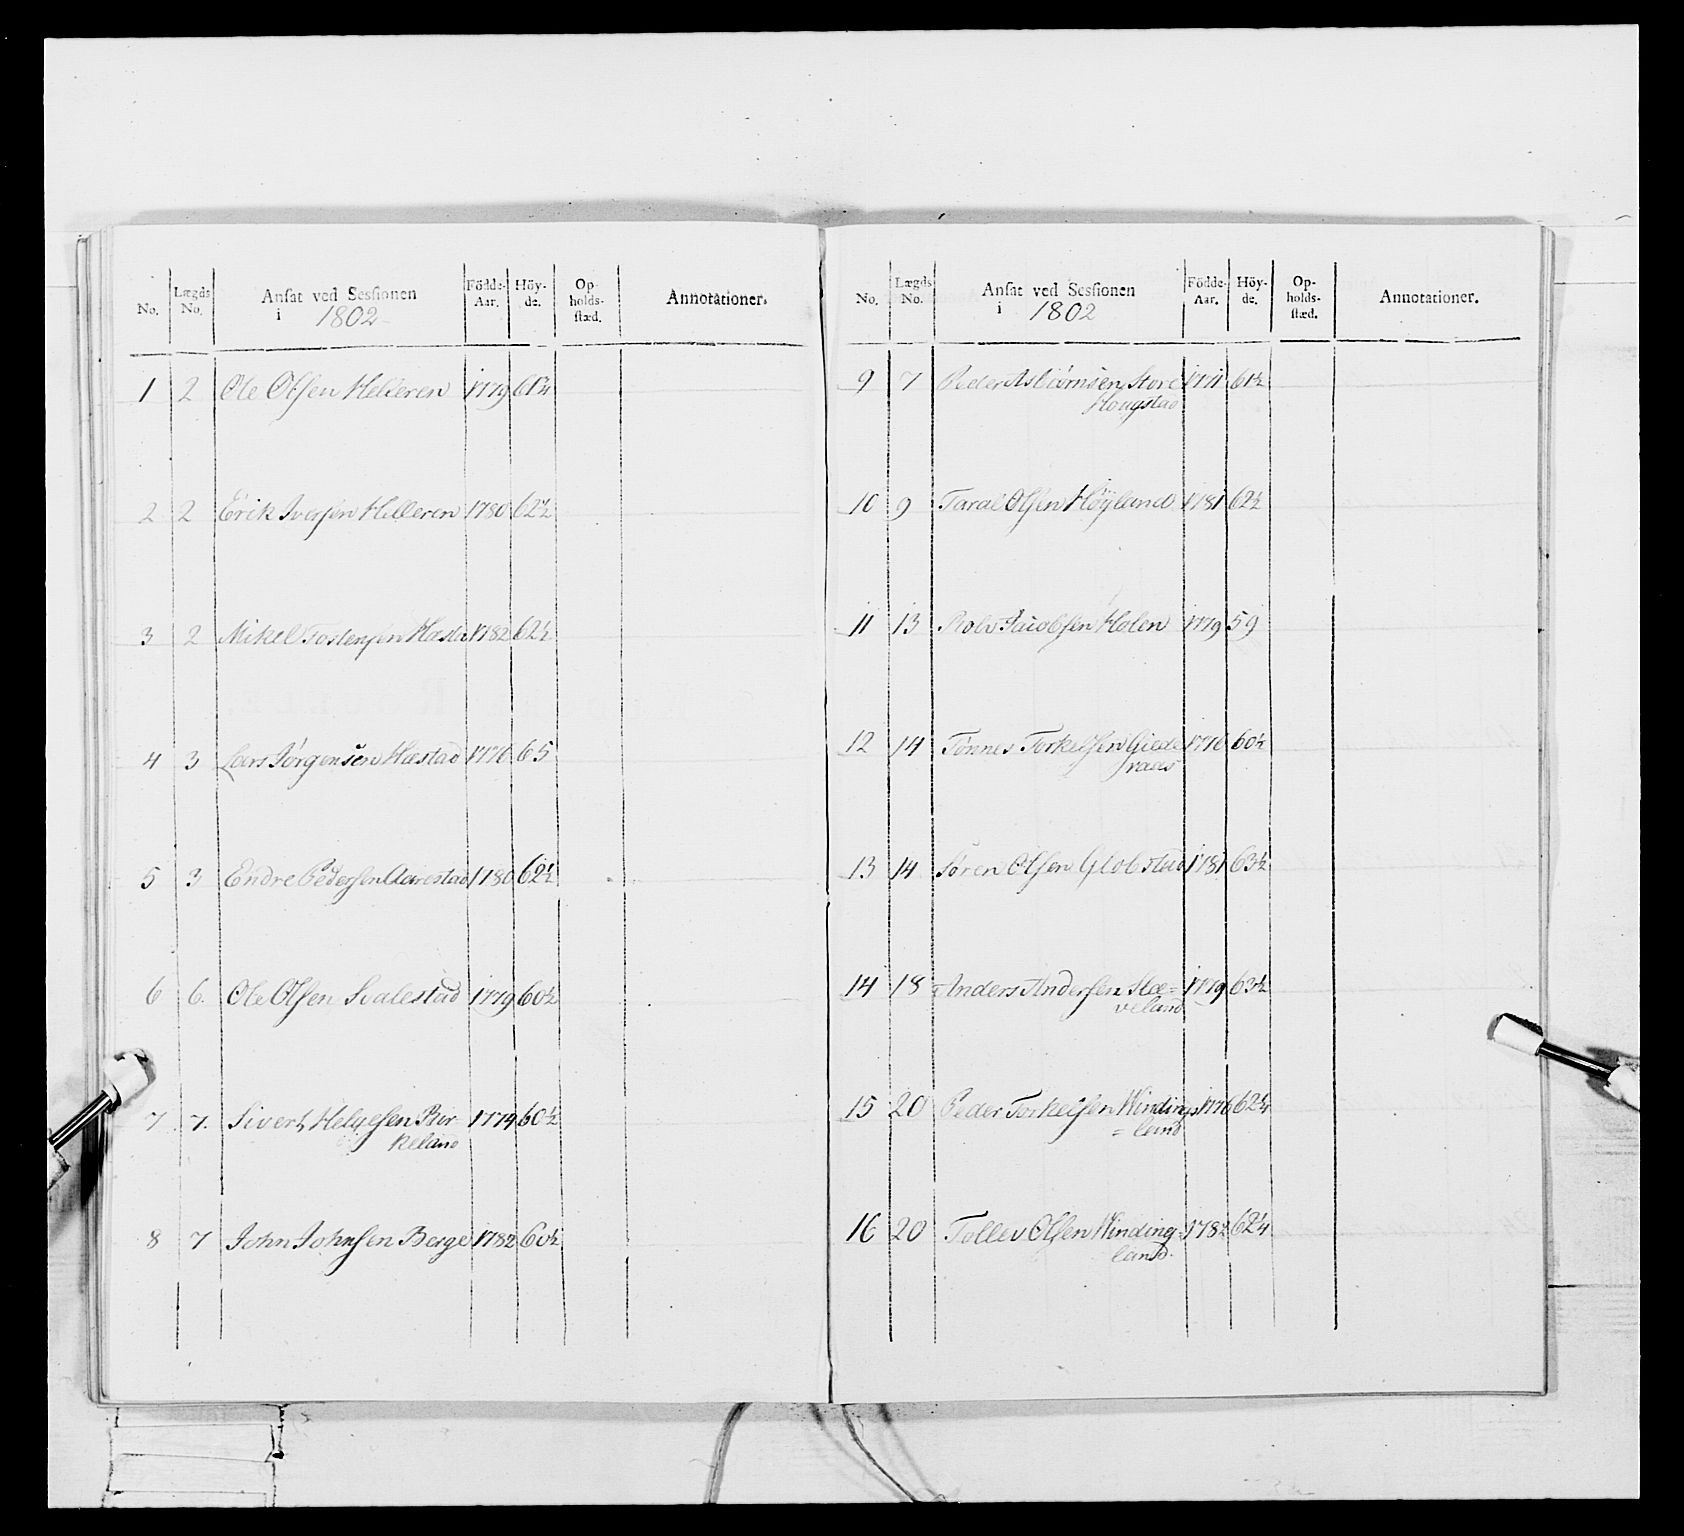 No. Lægds No. Ansat ved Sessionen i 1802 Födde-Aar. Höy-de. Op-holds-stæd. Annotationer.
1 2 Ole Olsen Helleren 1779 61¾
2 2 Erik Iversen Helleren 1780 62½
3 2 Mikel Tostensen 1782 62½
4 3 Lars Jörgensen Hæstad 1776 65
5 3 Endre Pedersen Aarestad 1780 62½
6 6. Ole Olsen Svalestad 1779 60½
7 7. Sivert Helgesen Bir
keland 1774 60½
8 7 John Johnsen Berge 1782 60½
No. Lægds No. Ansat ved Sessionen i 1802 Födde-Aar. Höy-de. Op-holds-stæd. Annotationer.
9 7 Peder Asbiörnsen Store 1771 61½
Hougstad
10 9 Taral Olsen Höyland 1781 62½
11 13 Rolv Jacobsen Holen 1779 59
12 14 Tönnes Torkelsen Giede 1776 60½
raas
13 14 Sören Olsen Globstad 1781 63½
14 18 Anders Andersen Slæ= 1779 63½
veland
15 20 Peder Torkelsen Windings 1776 62¼
=land
16 20 Tollev Olsen Winding 1782 62¼
land.